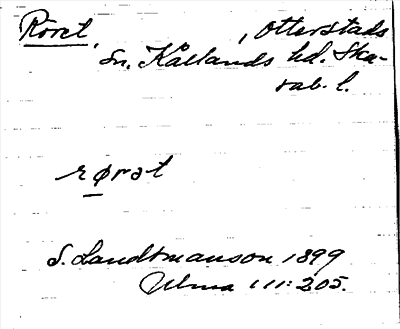 Röret, , Otterstads
sn. Kållands hd. Ska-
rab. l.
rørət
S. Landtmanson 1899
Ulma 111:205.